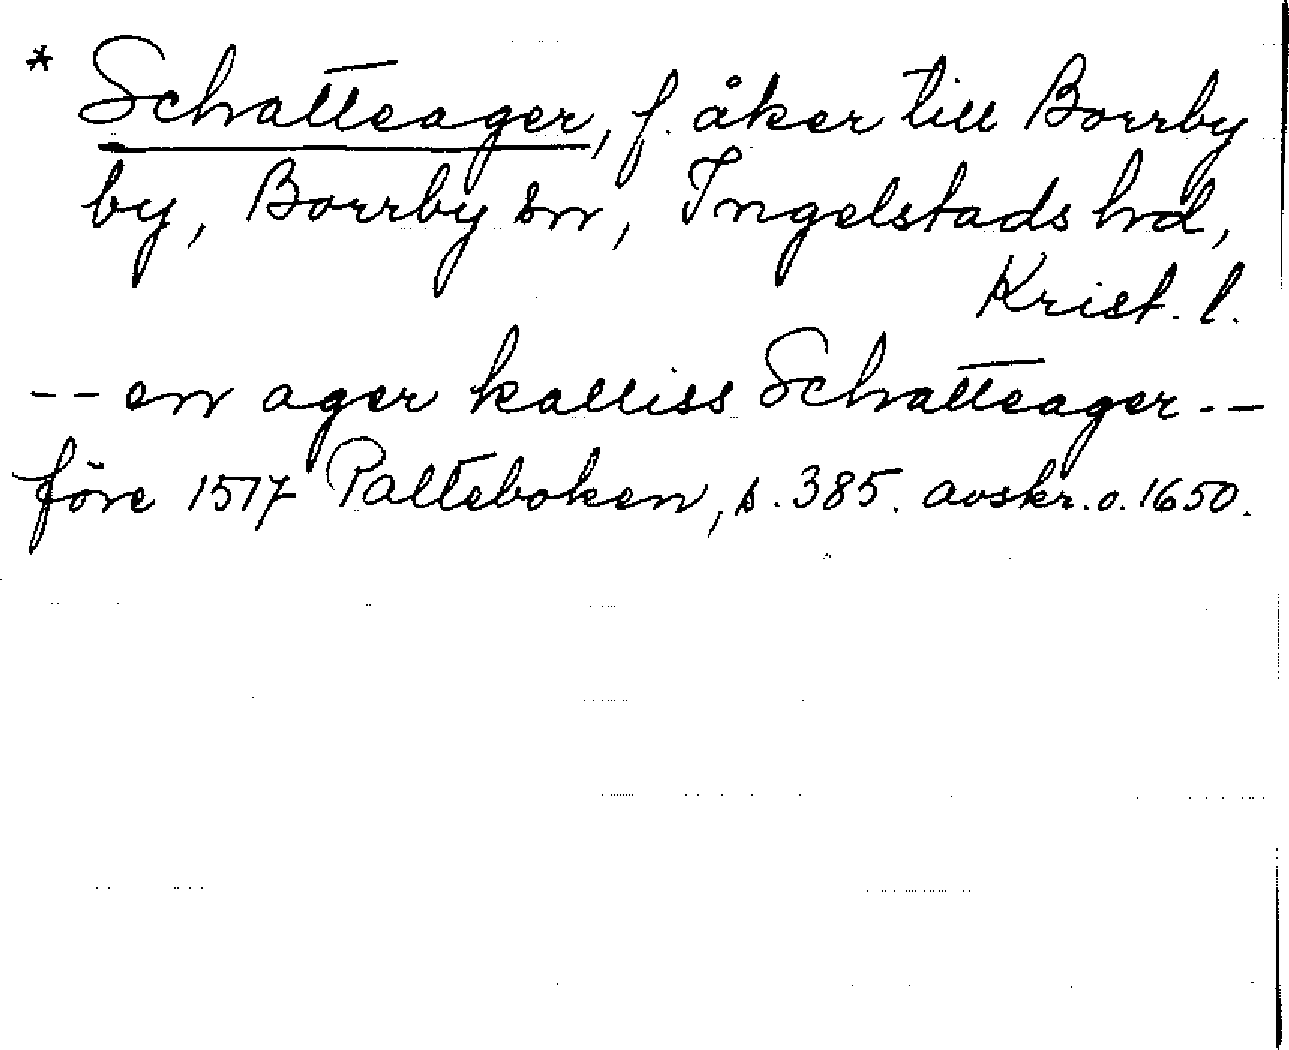 * Schatteager, f. åker till Borrby
by, Borrby sn, Ingelstads hd,
Krist. l.
-- en ager kalliss Schatteager --
före 1517 Palteboken, s. 385. avskr. o. 1650.